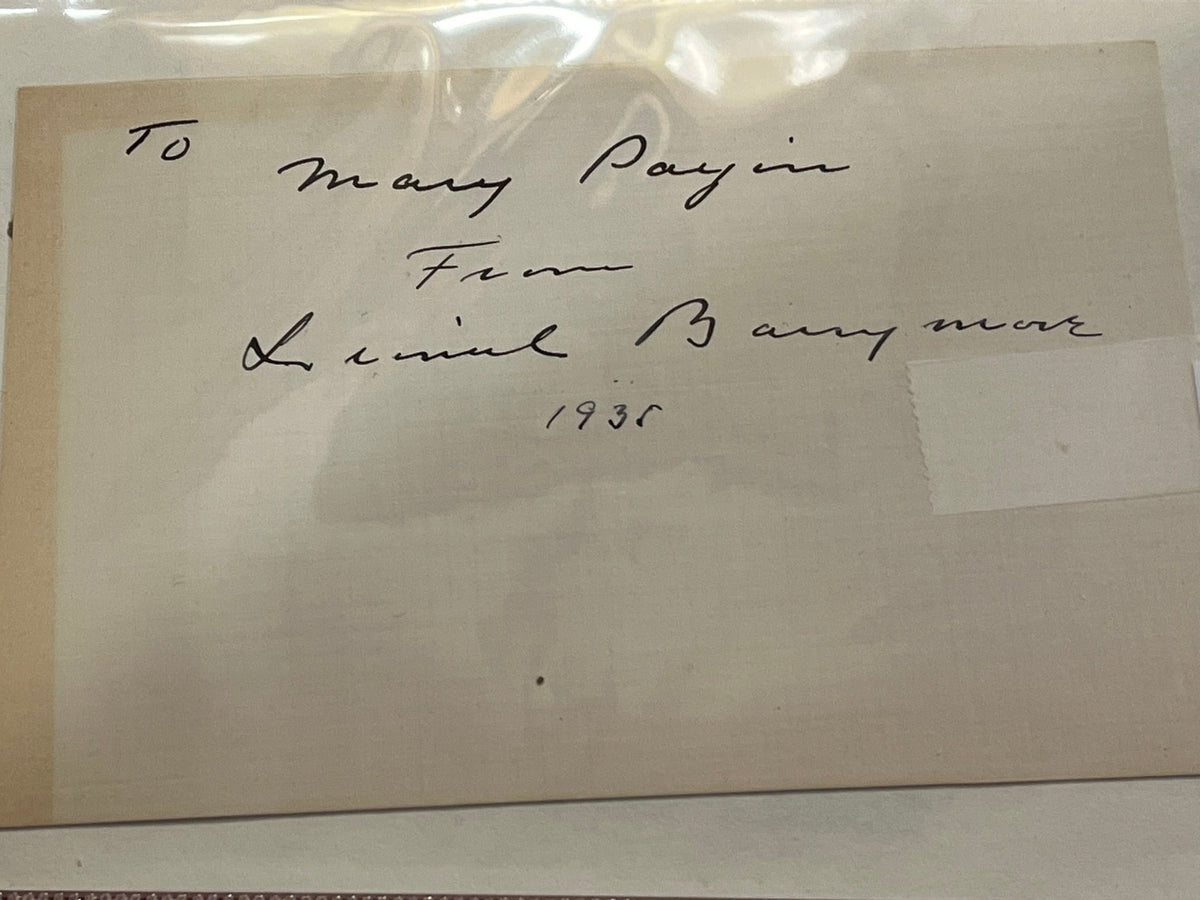 To
Mary Payin
From
Lionel Barrymore
1938